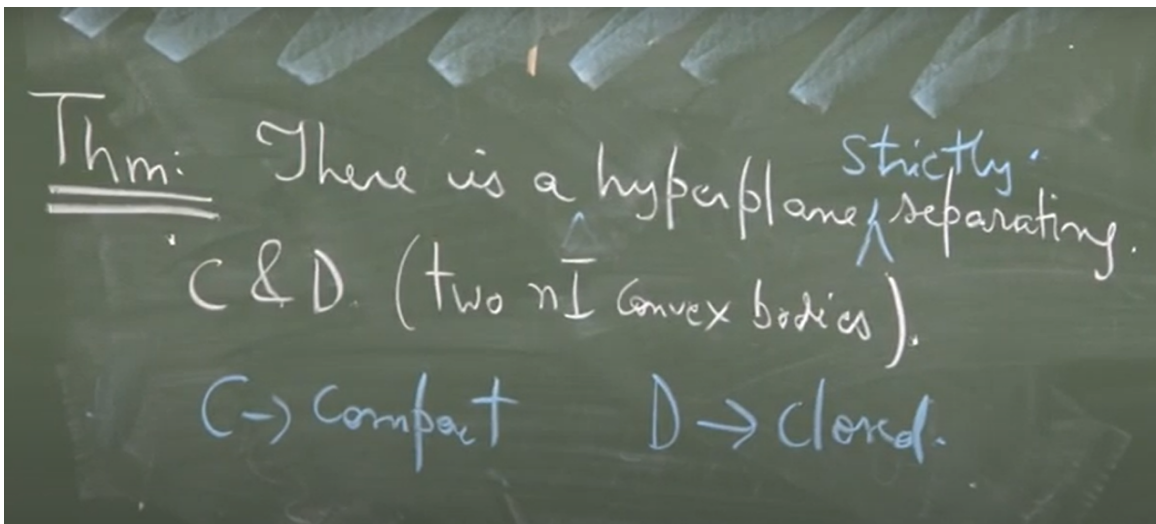 Thm: There is a hyperplane strictly separating.
C & D. (two nI convex bodies).
C → Compact D → Closed.